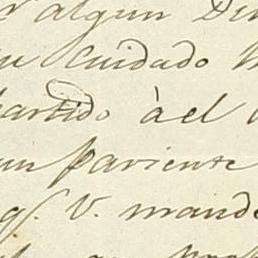 algun Din
cuidado
partido àel
un pariente
q.ͤ V. mande